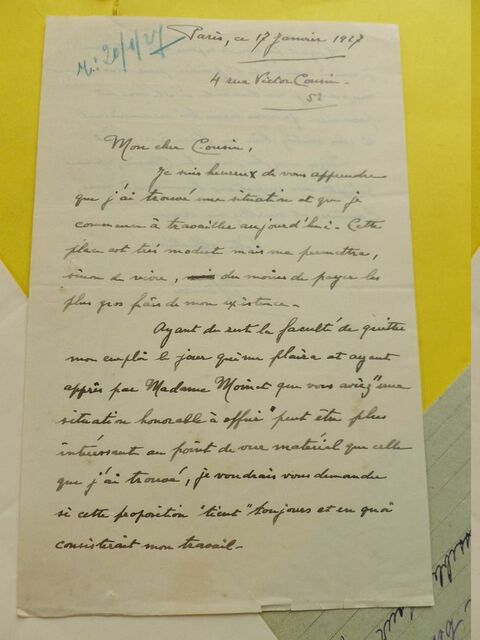 R: 20/1/27
Paris, ce 17 Janvier 1927
4 rue Victor Cousin -
5e
Mon cher Cousin,
Je suis heureux de vous apprendre
que j'ai trouvé une situation et que je
commence à travailler aujourd'hui - Cette
place est très modeste mais me permettra,
sinon de vivre, du moins de payer les
plus gros frais de mon existence -
Ayant du reste la faculté de quitter
mon emploi le jour qui me plaira et ayant
appris par Madame Moinet que vous aviez "une
situation honorable à offrir" peut être plus
intéressante au point de vue matériel que celle
que j'ai trouvé, je voudrais vous demander
si cette proposition "tient" toujours et en quoi
consisterait mon travail -